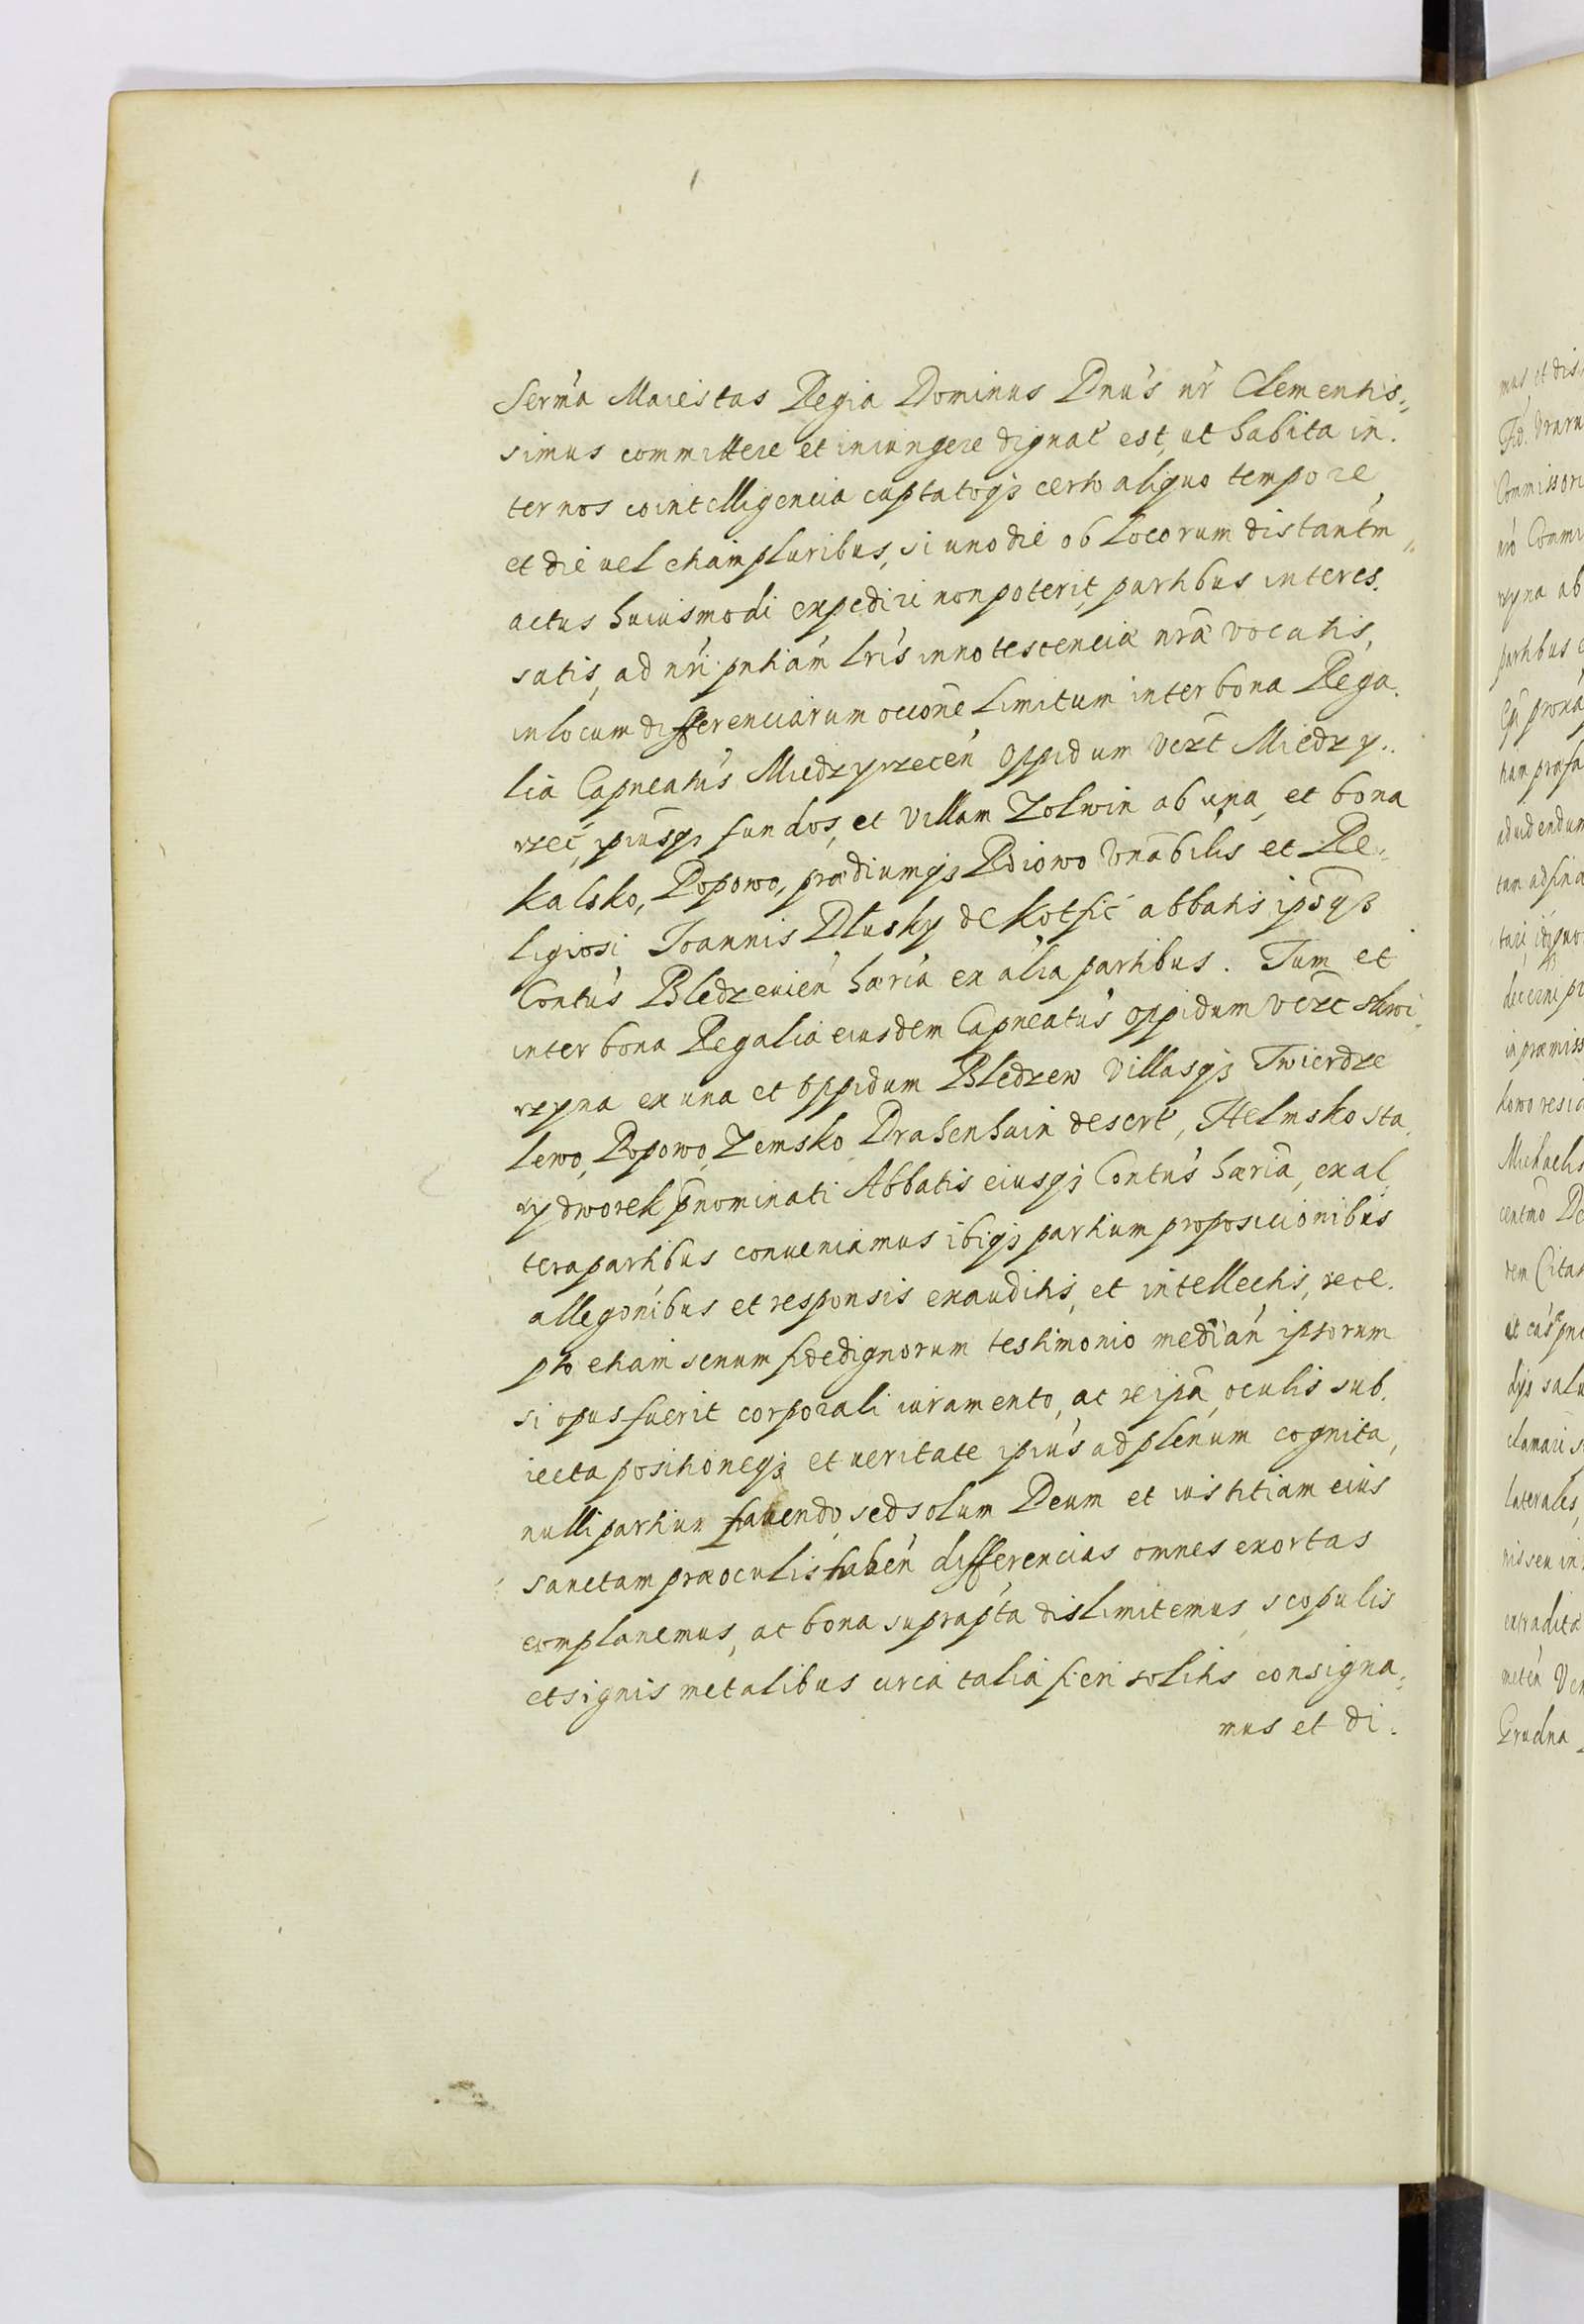 Serm̃a Maiestas Regia Dominus Dnũs nr̃ Clementis„
simus committere et iniungere dignat̃ est, ut habita in.
ter nos cointelligencia captatoqз certo aliquo tempore
et die uel etiam pluribus, si uno die ob locorum distantm̃„
actus huiusmodi expediri non poterit, partibus interes.
satis, ad nr̃i pñtiam lr̃is innotescenciæ nr̃æ vocatis,
in locum differenciarum occõne limitum inter bona Rega.
lia Capneatũs Miedzyrzecen̄ oppidum vckt Miedzy..
rzec, ipiusqз fundos, et villam Zolwin ab una, et bona
Kalsko, Popowo, prædiumqз Rdiowo Vnãbilis et Re„
ligiosi Joannis Dłusky de Kotfic abbatis ipsqз
Contũs Bledzeuien̄ hæria ex alia partibus. Tum et
inter bona Regalia eiusdem Capneatũs oppidum vckt Skwi.
rzyna ex una et oppidum Bledzew villasqз Twierdze
lewo, Popowo, Zemsko Drahenhain desert̃, Helmsko sta.
ry dworek p̄nominati Abbatis eiusqз Contũs hæria, ex al
tera partibus conueniamus ibiqз partium proposicionibus
allegõnibus et responsis exauditis, et intellectis, rece.
pto etiam senum fidedignorum testimonio median̄ ipsorum
si opus fuerit corporali iuramento, ac re ipã, oculis sub.
iecta positioneqз et ueritate ipiũs ad plenum cognita,
nulli partium fauendo, sed solum Deum et iustitiam eius
sanctam præ oculis haben̄ differencias omnes exortas
complanemus, ac bona suprapta dislimitemus, scopulis
et signis metalibus circa talia fieri solitis consigna„
mus et di.